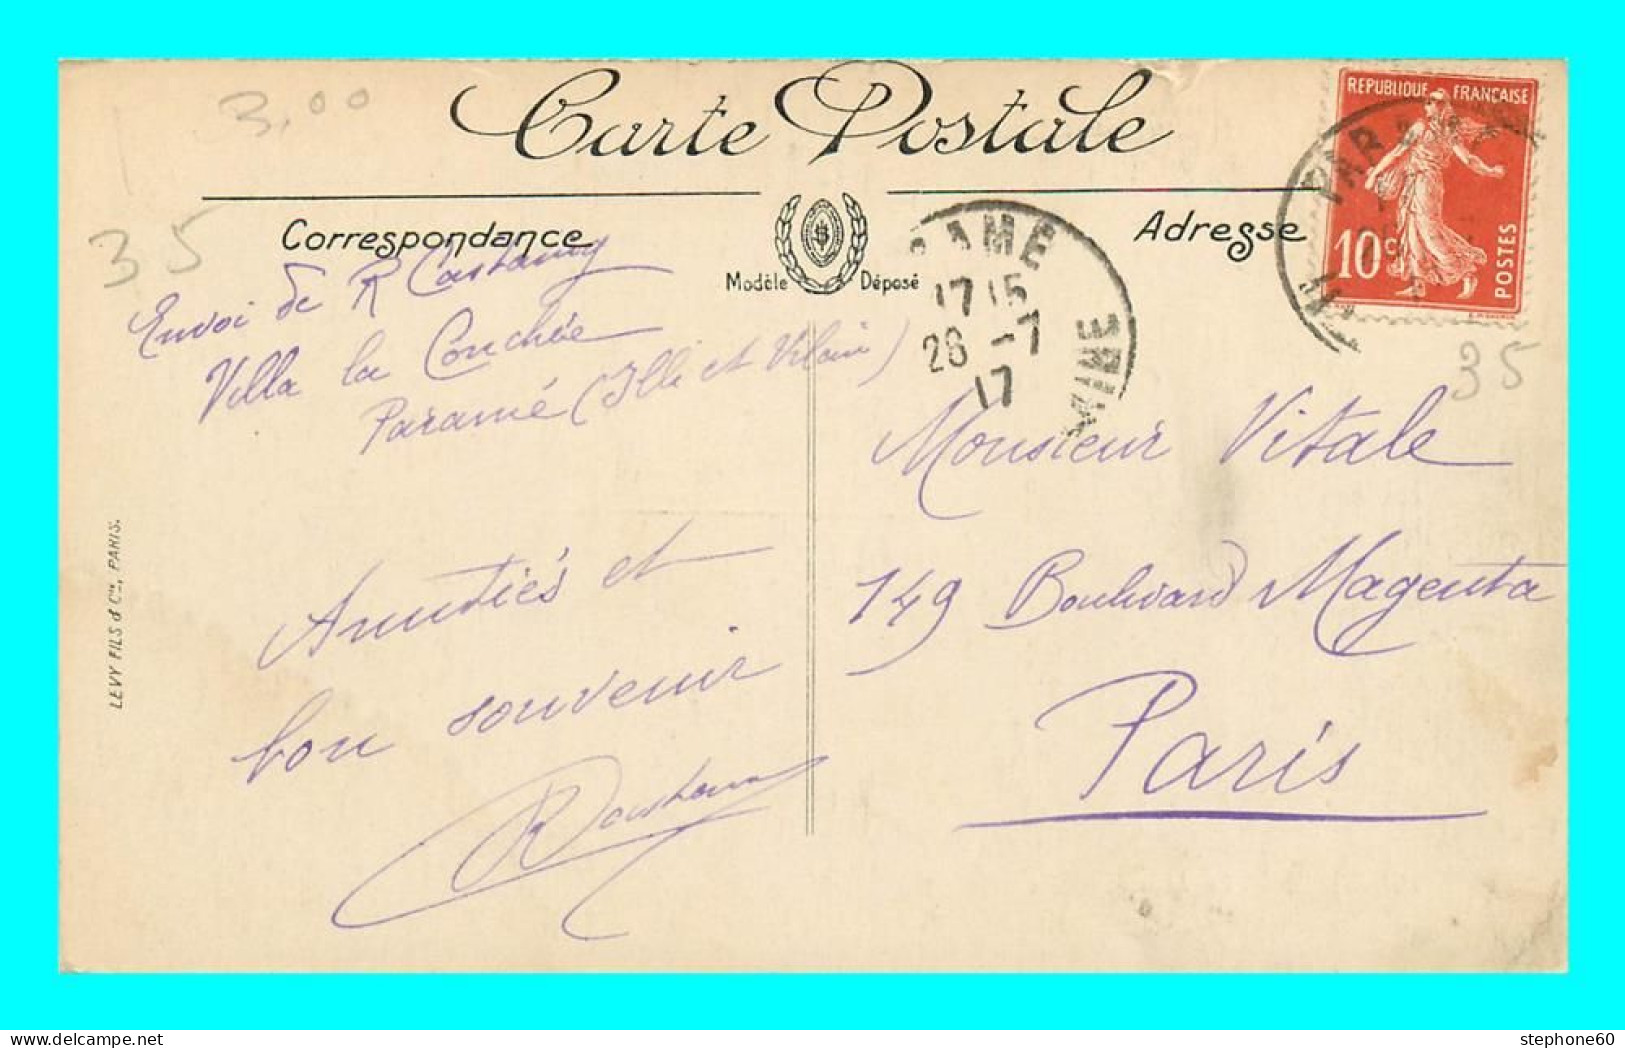 3,00
Carte Postale
REPUBLIQUE FRANÇAISE
10c
POSTES
Correspondance
Adresse
Modèle Déposé
35
PARAMÉ
17 15
26 -7
17
35
Envoi de R
Villa la Conchée
Paramé (Ille et Vilaine)
Monsieur Vitale
149 Boulevard Magenta
Paris
Amitiés et
bon souvenir
LEVY FILS & Cie, PARIS.
stephone60